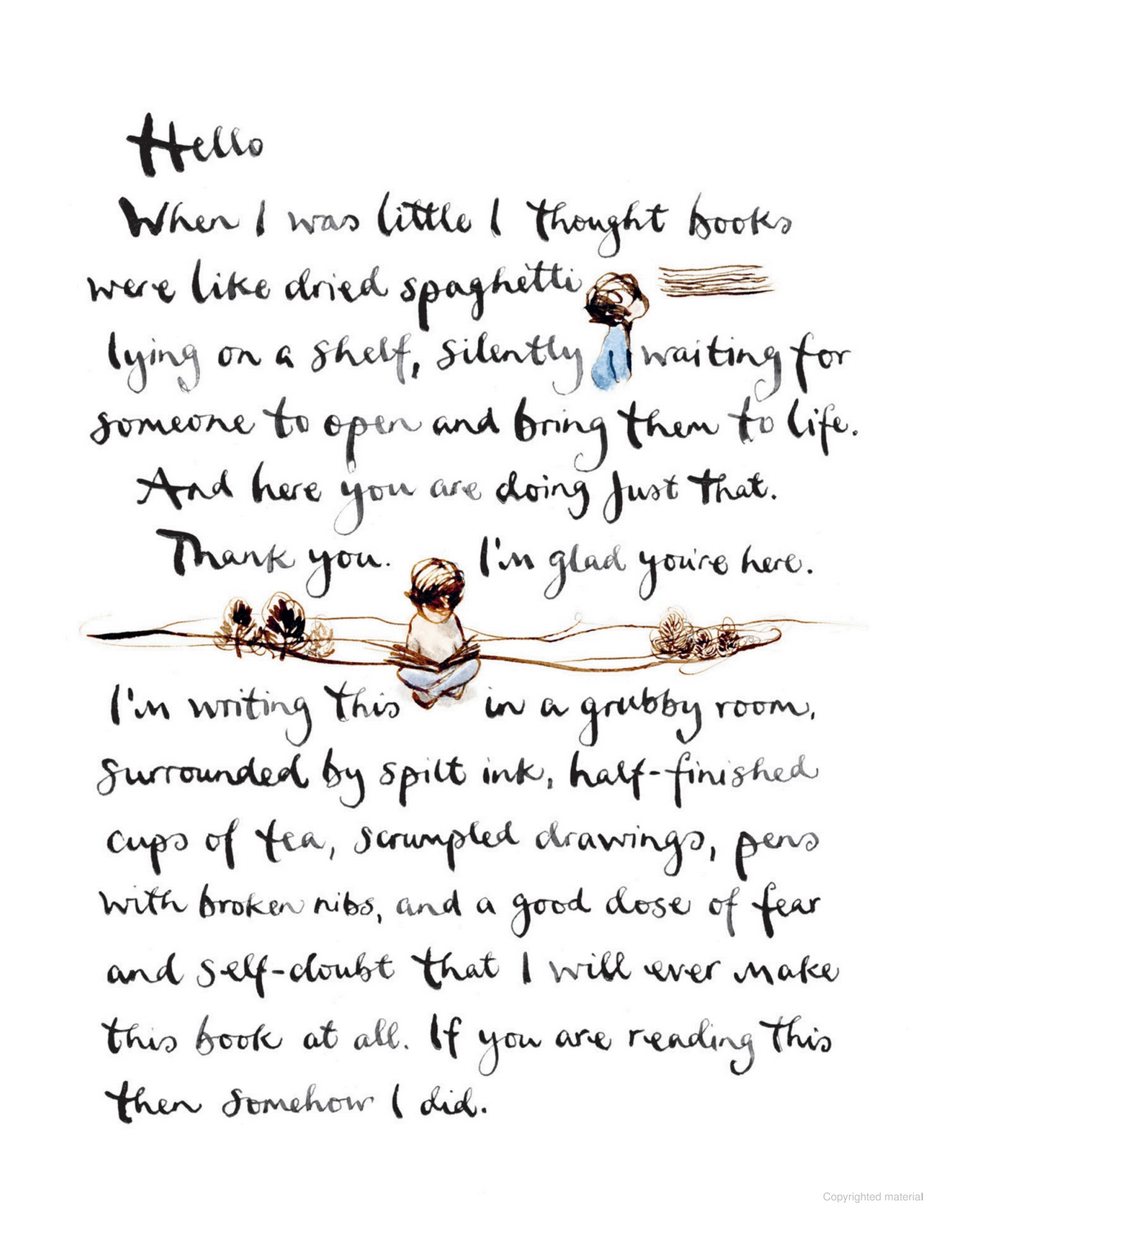 Hello
When I was little I thought books
were like dried spaghetti
lying on a shelf, silently waiting for
someone to open and bring them to life.
And here you are doing just that.
Thank you. I'm glad you're here.
I'm writing this in a grubby room,
surrounded by spilt ink, half-finished
cups of tea, scrumpled drawings, pens
with broken nibs, and a good dose of fear
and self-doubt that I will ever make
this book at all. If you are reading this
then somehow I did.
Copyrighted material